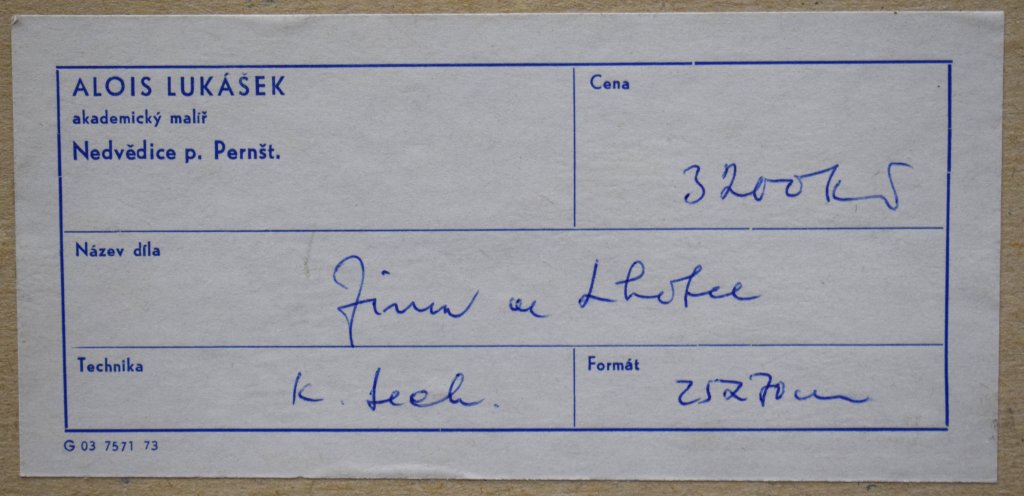 ALOIS LUKÁŠEK
akademický malíř
Nedvědice p. Pernšt.
Cena
3200kčs
Název díla
Zima ve Lhotce
Technika
k. tech.
Formát
25x70cm
G 03 7571 73